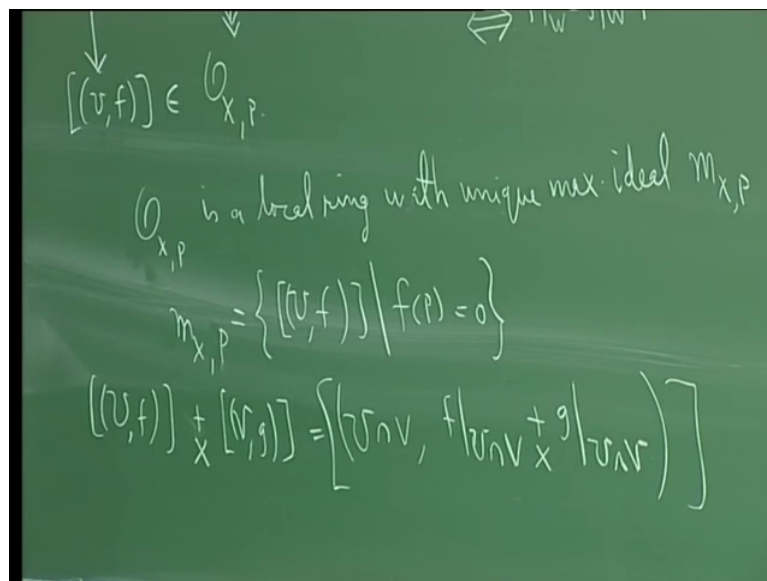 ⟺ f|W = g|W
[(U,f)] ∈ O_{X,P}.
O_{X,P} is a local ring with unique max. ideal m_{X,P}
m_{X,P} = { [(U,f)] | f(P) = 0 }
[(U,f)] +× [(V,g)] = [(U∩V, f|U∩V +× g|U∩V)]